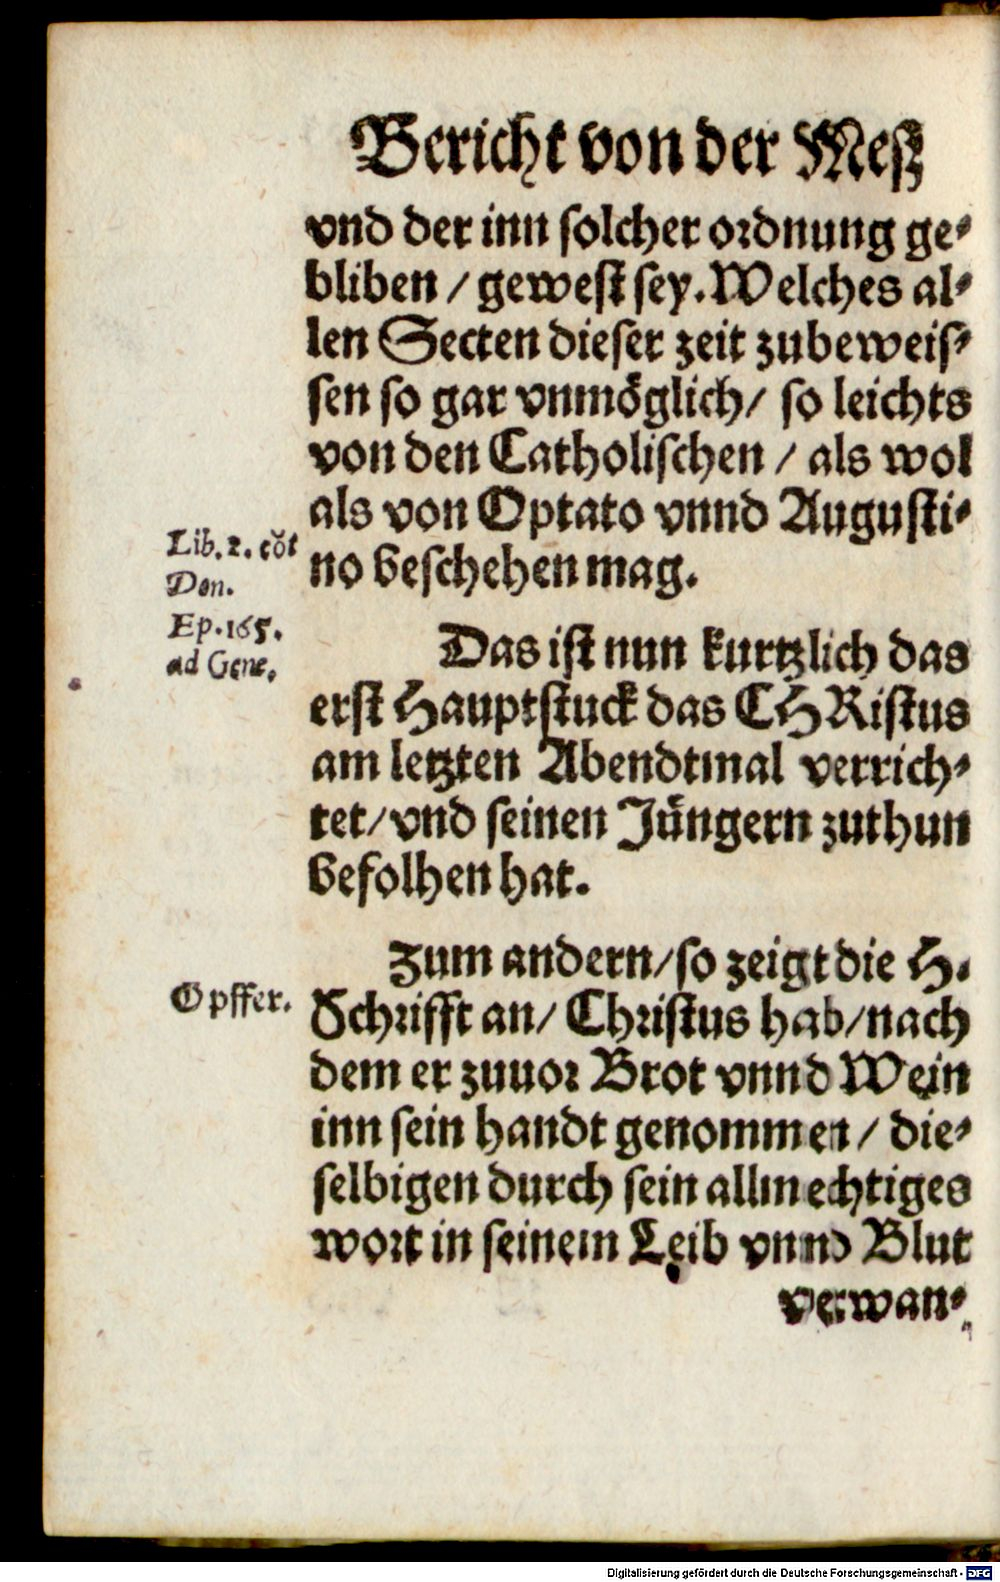 Bericht von der Meß
vnd der inn solcher ordnung ge⸗
bliben / gewest sey. Welches al⸗
len Secten dieser zeit zubeweis⸗
sen so gar vnmöglich / so leichts
von den Catholischen / als wol
als von Optato vnnd Augusti⸗
no beschehen mag.
Lib. 2. cōt
Don.
Ep. 165.
ad Gene.
Das ist nun kurtzlich das
erst Hauptstuck das CHRistus
am letzten Abendtmal verrich⸗
tet / vnd seinen Jüngern zuthun
befolhen hat.
Zum andern / so zeigt die H.
Opffer.
Schrifft an / Christus hab / nach
dem er zuuor Brot vnnd Wein
inn sein handt genommen / die⸗
selbigen durch sein allmechtiges
wort in seinem Leib vnnd Blut
verwan⸗
Digitalisierung gefördert durch die Deutsche Forschungsgemeinschaft - DFG